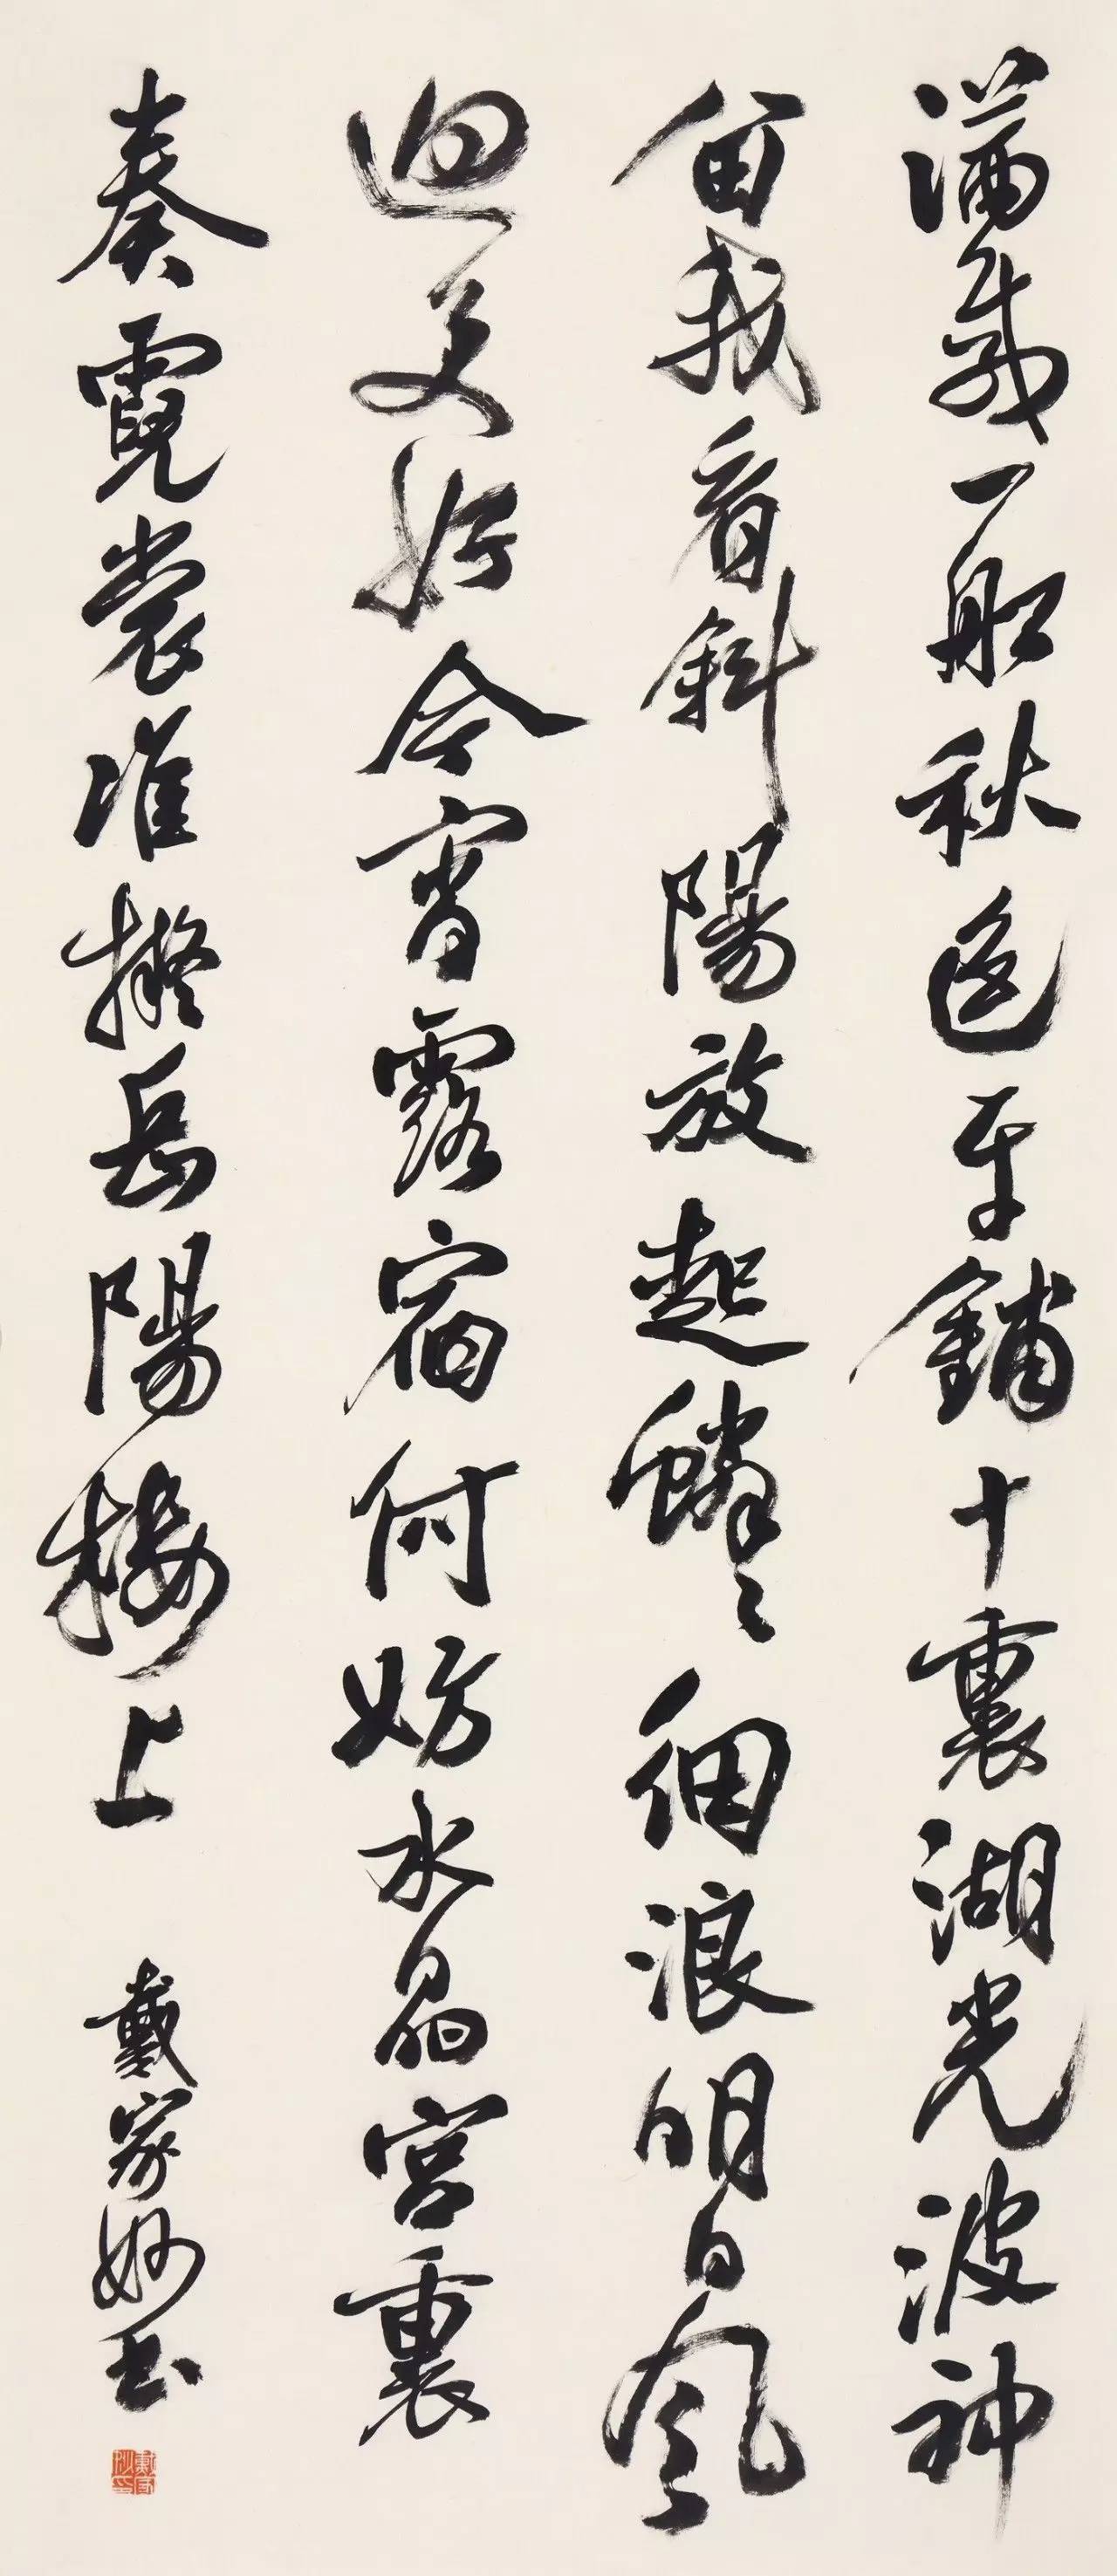 滿載一船秋色平鋪十裏湖光波神
留我看斜陽放起鱗々細浪明日風
迴更好今宵露宿何妨水晶宮裏
奏霓裳准擬岳陽樓上 戴家妙書
戴家妙印